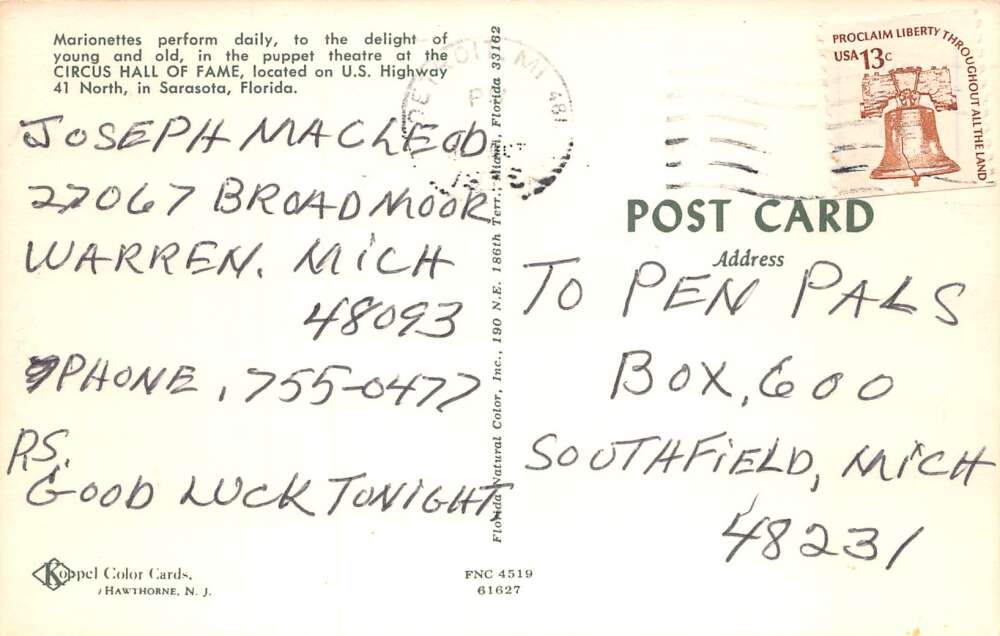 Marionettes perform daily, to the delight of
young and old, in the puppet theatre at the
CIRCUS HALL OF FAME, located on U.S. Highway
41 North, in Sarasota, Florida.
JOSEPH MACLEOD
27067 BROADMOOR
WARREN. MiCH
48093
PHONE, 755-0477
P.S.
GOOD LUCK TONIGHT
Koppel Color Cards.
HAWTHORNE, N. J.
Florida Natural Color, Inc., 190 N.E. 186th Terr., Miami, Florida 33162
FNC 4519
61627
DETROIT, MI 481
PROCLAIM LIBERTY THROUGHOUT ALL THE LAND
USA 13c
POST CARD
Address
TO PEN PALS
BOX, 600
SOUTHFiELD, MiCH
48231